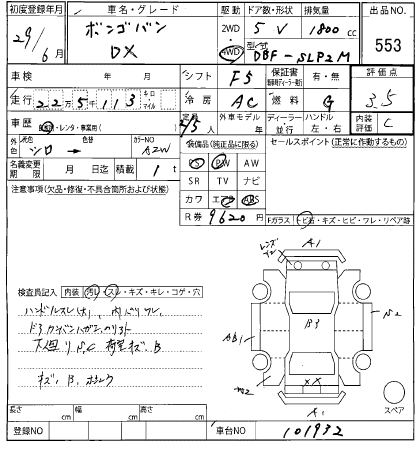 初度登録年月 車名・グレード 駆動 ドア数・形状 排気量 出品NO.
29/6月 ボンゴバン DX 2WD 4WD 5 V 1800cc 553
型式 DBF-SLP2M
車検 年 月 シフト F5 保証書 有・無 評価点
走行 22万5千113 キロ マイル 冷房 AC 燃料 G 3.5
車歴 自家用・レンタ・事業用( ) 定員 外車モデル 年 ディーラー・並行 ハンドル 左・右 内装評価 C
外色 元色 シロ → 色替 カラーNO A2W 装備品(純正品に限る) セールスポイント(正常に作動するもの)
名義変更期限 月 日迄 積載 1t PS PW AW
注意事項(欠品・修復・不具合箇所および状態) SR TV ナビ
カワ エアB ABS
R券 9620 Fガラス トビ石・キズ・ヒビ・ワレ・リペア跡
A1
検査員記入 内装 汚れ・スレ・キズ・キレ・コゲ・穴
ハンドルスレ(大)、内バリワレ
AB1
キズ、B、
A1
スペア
長さ cm 幅 cm 高さ cm
登録NO 車台NO 101932